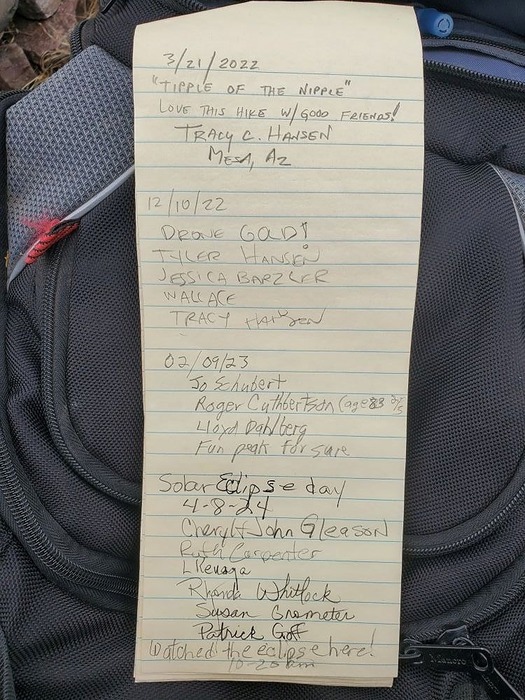 3/21/2022
"TIPPLE OF THE NIPPLE"
LOVE THIS HIKE W/ GOOD FRIENDS!
TRACY C. HANSEN
MESA, AZ
12/10/22
DRONE GOD!
TYLER HANSEN
JESSICA BARZLER
WALLACE
TRACY HANSEN
02/09/23
Jo Schubert
Roger Cuthbertson (age 83
Lloyd Dahlberg
Fun peak for sure
Solar Eclipse day
4-8-24
Cheryl + John Gleason
Ruth Carpenter
L Renaga
Rhonda Whitlock
Susan Grometer
Patrick Goff
Watched the eclipse here!